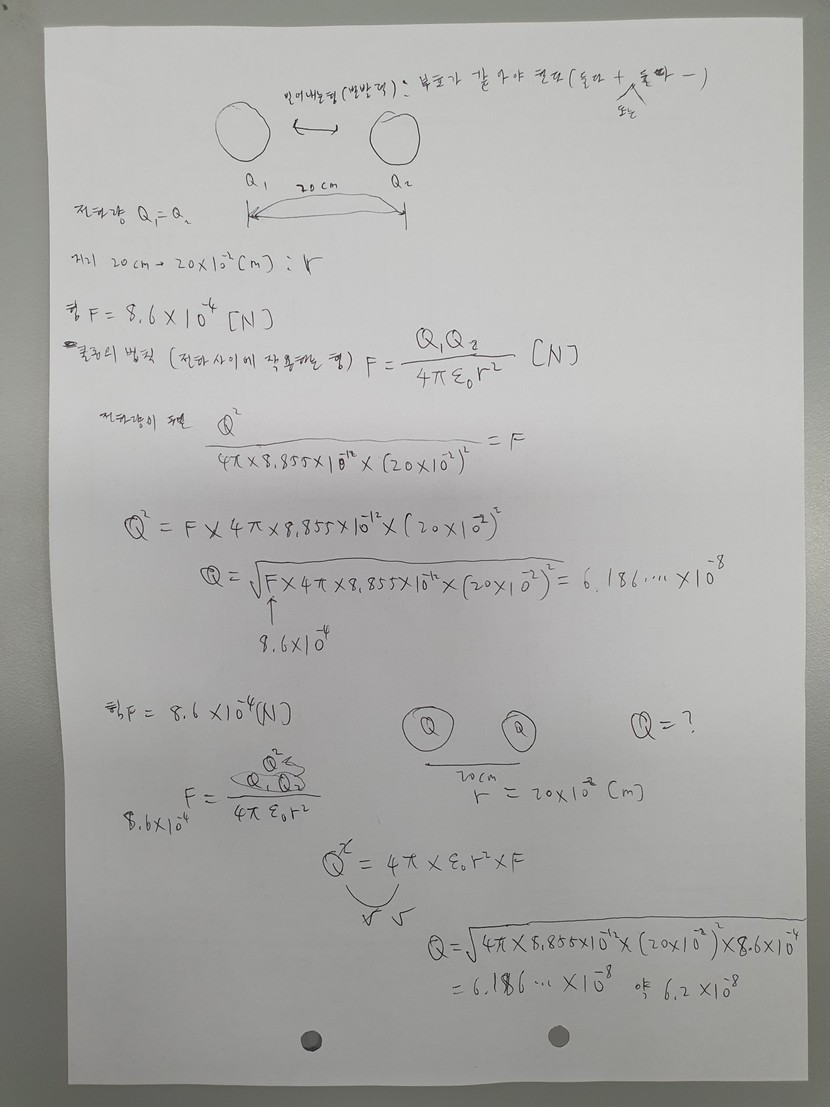 밀어내는힘(반발력) : 부호가 같아야 된다 (둘다 + 둘다 −)
또는
Q₁ Q₂
20cm
전하량 Q₁=Q₂
거리 20cm → 20×10⁻²[m] : r
힘 F = 8.6×10⁻⁴ [N]
쿨롱의 법칙 (전하 사이에 작용하는 힘) F = Q₁Q₂ / 4πε₀r² [N]
전하량이 Q² / 4π×8.855×10⁻¹²×(20×10⁻²)² = F
Q² = F×4π×8.855×10⁻¹²×(20×10⁻²)²
Q = √F×4π×8.855×10⁻¹²×(20×10⁻²)² = 6.186…×10⁻⁸
8.6×10⁻⁴
힘F = 8.6×10⁻⁴[N]
Q Q
Q = ?
20cm
r = 20×10⁻²[m]
Q²
F = Q₁Q₂ / 4πε₀r²
8.6×10⁻⁴
Q² = 4π×ε₀r²×F
√ √
Q = √4π×8.855×10⁻¹²×(20×10⁻²)²×8.6×10⁻⁴
= 6.186…×10⁻⁸ 약 6.2×10⁻⁸